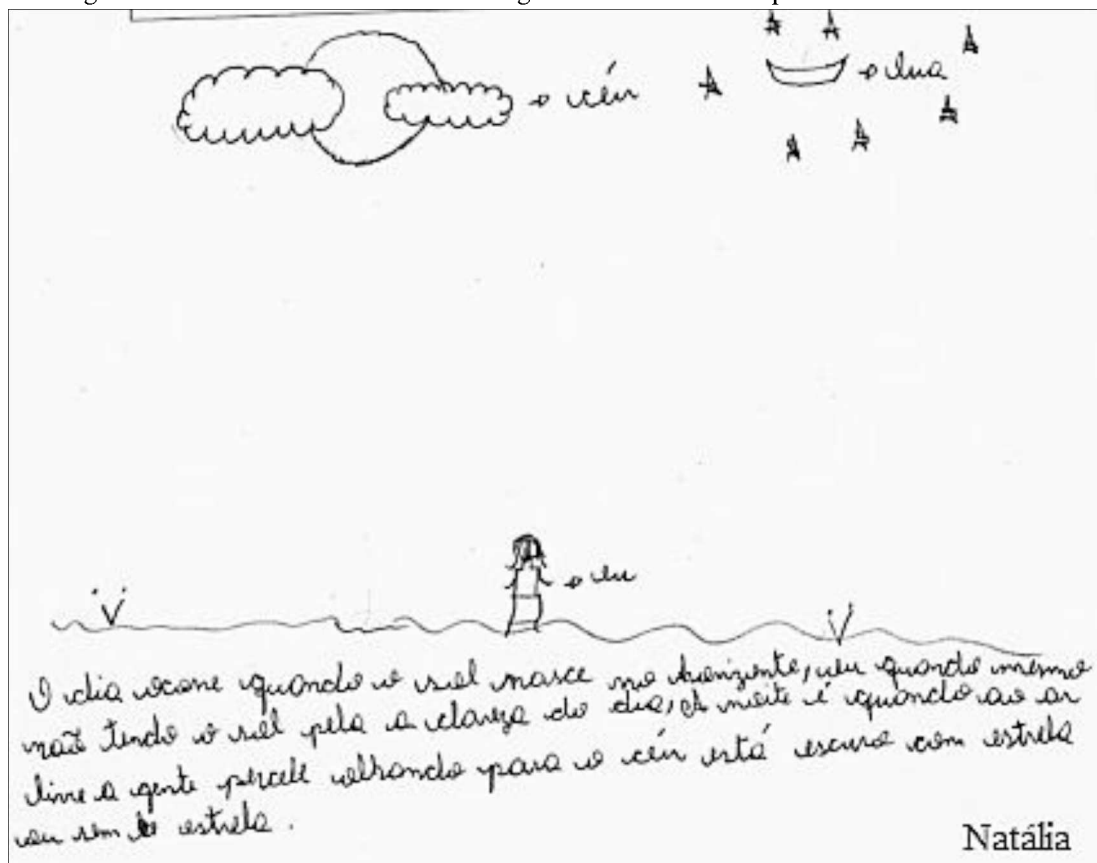 céu
lua
eu
O dia ocorre quando o sol nasce no horizonte, ou quando mesmo
não tendo o sol pela a clareza do dia, A noite é quando ao ar
livre a gente percebe olhando para o céu está escuro com estrela
ou sem estrela.
Natália